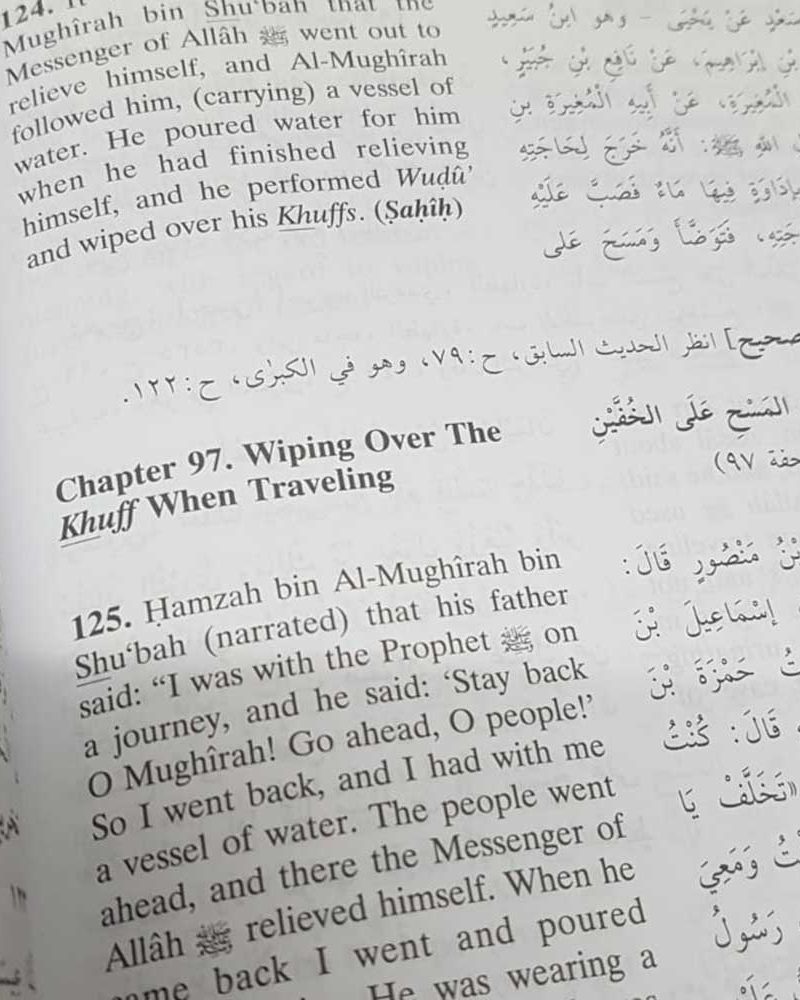 124.
Mughîrah bin Shu'bah that the
Messenger of Allâh ﷺ went out to
relieve himself, and Al-Mughîrah
followed him, (carrying) a vessel of
water. He poured water for him
when he had finished relieving
himself, and he performed Wuḍû'
and wiped over his Khuffs. (Ṣaḥîḥ)
عَنْ يَحْيَى - وهو ابنُ سَعِيدٍ
بْنِ إِبْرَاهِيمَ، عَنْ نَافِعِ بْنِ جُبَيْرٍ،
الْمُغِيرَةِ، عَنْ أَبِيهِ الْمُغِيرَةِ بنِ
اللهِ ﷺ: أَنَّهُ خَرَجَ لِحَاجَتِهِ
بِإِدَاوَةٍ فِيهَا مَاءٌ فَصَبَّ عَلَيْهِ
فَتَوَضَّأَ وَمَسَحَ عَلَى
صحيح] انظر الحديث السابق، ح:٧٩، وهو في الكبرٰى، ح:١٢٢.
Chapter 97. Wiping Over The
Khuff When Traveling
المَسْحِ عَلَى الخُفَّيْنِ
٩٧)
125. Ḥamzah bin Al-Mughîrah bin
Shu‘bah (narrated) that his father
said: “I was with the Prophet ﷺ on
a journey, and he said: ‘Stay back
O Mughîrah! Go ahead, O people!’
So I went back, and I had with me
a vessel of water. The people went
ahead, and there the Messenger of
Allâh ﷺ relieved himself. When he
back I went and poured
He was wearing a
مَنْصُورٍ قَالَ:
إِسْمَاعِيلَ بْنَ
حَمْزَةَ بْنَ
قَالَ: كُنْتُ
«تَخَلَّفْ يَا
وَمَعِيَ
رَسُولُ